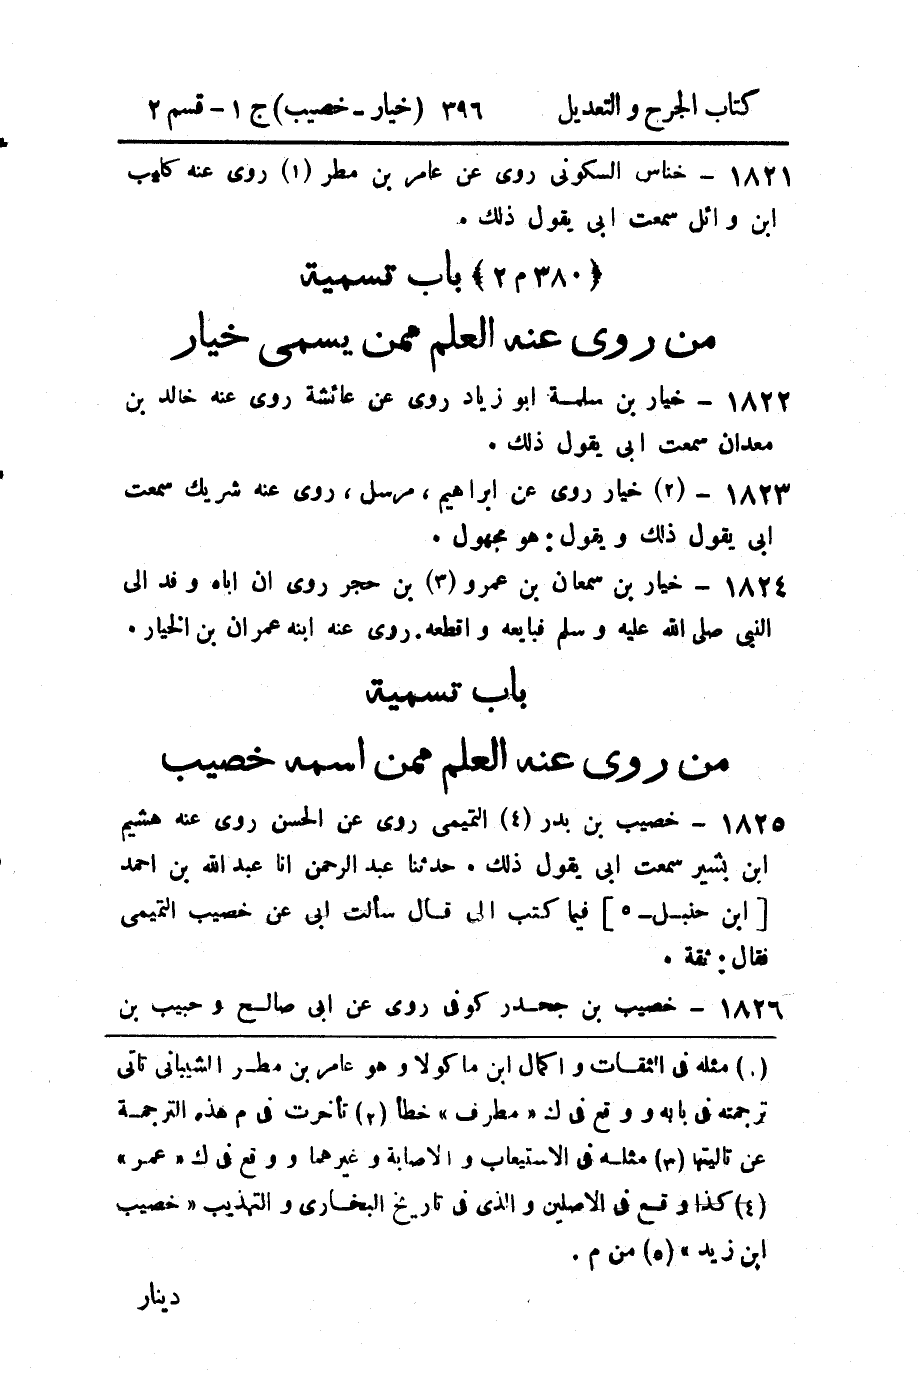 كتاب الجرح و التعديل ٣٩٦ (خيار - خصيب) ج ١ - قسم ٢
١٨٢١ - خناس السكونى روى عن عامر بن مطر (١) روى عنه كليب
ابن وائل سمعت ابى يقول ذلك .
﴿٣٨٠ م ٢﴾ باب تسمية
من روى عنه العلم ممن يسمى خيار
١٨٢٢ - خيار بن سلمة ابو زياد روى عن عائشة روى عنه خالد بن
معدان سمعت ابى يقول ذلك .
١٨٢٣ - (٢) خيار روى عن ابراهيم ، مرسل ، روى عنه شريك سمعت
ابى يقول ذلك و يقول : هو مجهول .
١٨٢٤ - خيار بن سمعان بن عمرو (٣) بن حجر روى ان اباه و فد الى
النبى صلى الله عليه و سلم فبايعه و اقطعه . روى عنه ابنه عمران بن الخيار .
باب تسمية
من روى عنه العلم ممن اسمه خصيب
١٨٢٥ - خصيب بن بدر (٤) التميمى روى عن الحسن روى عنه هشيم
ابن بشير سمعت ابى يقول ذلك . حدثنا عبد الرحمن انا عبد الله بن احمد
[ ابن حنبل - ٥ ] فيما كتب الى قال سألت ابى عن خصيب التميمى
فقال : ثقة .
١٨٢٦ - خصيب بن جحدر كوفى روى عن ابى صالح و حبيب بن
(١) مثله فى الثقات و اكمال ابن ماكولا و هو عامر بن مطر الشيبانى تاتى
ترجمته فى بابه و وقع فى ك « مطرف » خطأ (٢) تأخرت فى م هذه الترجمة
عن تاليتها (٣) مثله فى الاستيعاب و الاصابة و غيرهما و وقع فى ك « عمر »
(٤) كذا وقع فى الاصلين و الذى فى تاريخ البخارى و التهذيب « خصيب
ابن زيد » (٥) من م .
دينار